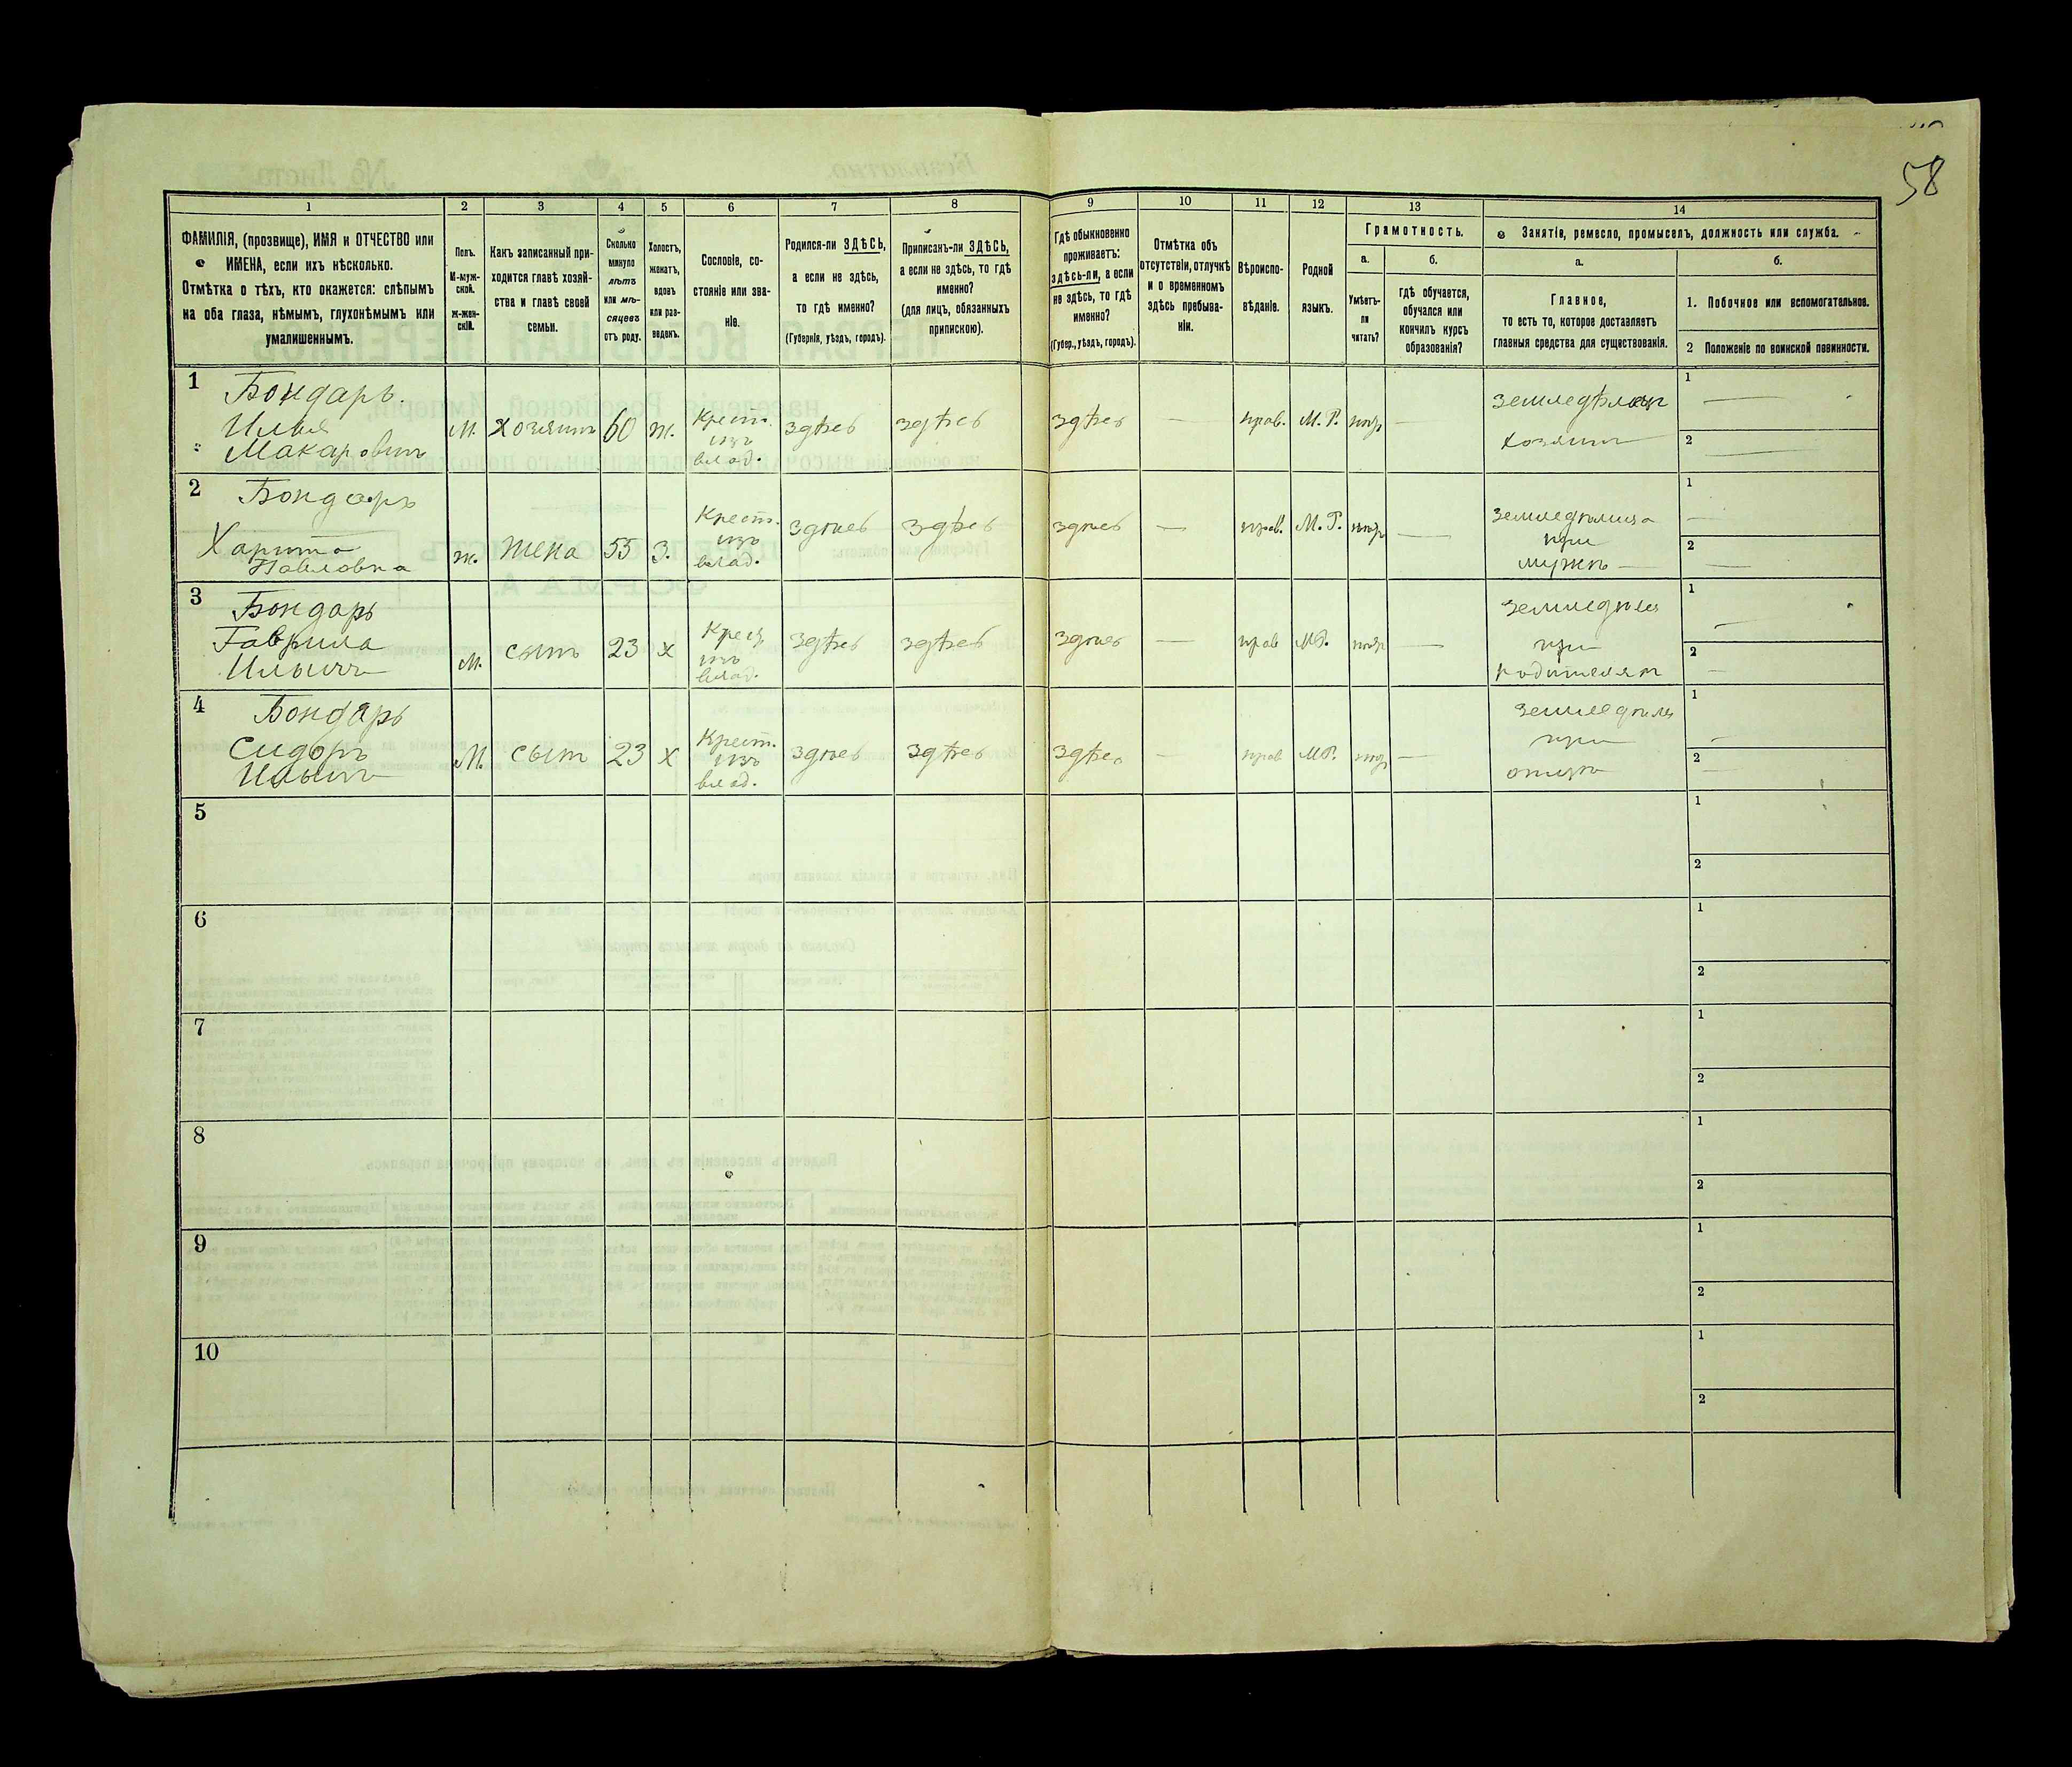 58
1 2 3 4 5 6 7 8 9 10 11 12 13 14
ФАМИЛІЯ, (прозвище), ИМЯ и ОТЧЕСТВО или
ИМЕНА, если ихъ нѣсколько.
Отмѣтка о тѣхъ, кто окажется: слѣпымъ
на оба глаза, нѣмымъ, глухонѣмымъ или
умалишеннымъ.
Полъ.
М-муж-
ской.
Ж-жен-
скій.
Какъ записанный при-
ходится главѣ хозяй-
ства и главѣ своей
семьи.
Сколько
минуло
лѣтъ
или мѣ-
сяцевъ
отъ роду.
Холостъ,
женатъ,
вдовъ
или раз-
веденъ.
Сословіе, со-
стояніе или зва-
ніе.
Родился-ли ЗДѢСЬ,
а если не здѣсь,
то гдѣ именно?
(Губернія, уѣздъ, городъ).
Приписанъ-ли ЗДѢСЬ,
а если не здѣсь, то гдѣ
именно?
(для лицъ, обязанныхъ
припискою).
Гдѣ обыкновенно
проживаетъ:
здѣсь-ли, а если
не здѣсь, то гдѣ
именно?
(Губер., уѣздъ, городъ).
Отмѣтка объ
отсутствіи, отлучкѣ
и о временномъ
здѣсь пребыва-
ніи.
Вѣроиспо-
вѣданіе.
Родной
языкъ.
Грамотность.
а.
Умѣетъ-
ли
читать?
б.
гдѣ обучается,
обучался или
кончилъ курсъ
образованія?
Занятіе, ремесло, промыселъ, должность или служба.
а.
Главное,
то есть то, которое доставляетъ
главныя средства для существованія.
б.
1. Побочное или вспомогательное.
2 Положеніе по воинской повинности.
1
Бондарь.
Илья
Макаровичъ
М.
хозяинъ
60
ж.
Крест.
изъ
влад.
здѣсь
здѣсь
здѣсь
—
прав.
М. Р.
—
хозяинъ
1 —
2 —
2
Бондарь
Харита
Павловна
ж.
жена
55
З.
Крест.
изъ
влад.
здѣсь
здѣсь
здѣсь
—
прав.
М. Р.
—
при
мужѣ —
1 —
2 —
3
Бондарь
Гаврила
Ильичъ
М.
сынъ
23
х
изъ
влад.
здѣсь
здѣсь
здѣсь
—
прав
МР.
—
при
1 —
2 —
4
Бондарь
Сидоръ
Ильичъ
М.
сынъ
23
х
Крест.
изъ
влад.
здѣсь
здѣсь
здѣсь
—
прав
МР.
—
при
отцѣ
1 —
2 —
5
1
2
6
1
2
7
1
2
8
1
2
9
1
2
10
1
2